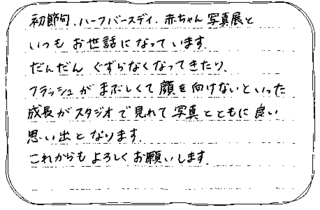 初節句、ハーフバースデイ、赤ちゃん写真展と
いつもお世話になっています。
だんだんぐずらなくなってきたり、
フラッシュがまぶしくて顔を向けないといった
成長がスタジオで見れて写真とともに良い
思い出となります。
これからもよろしくお願いします。